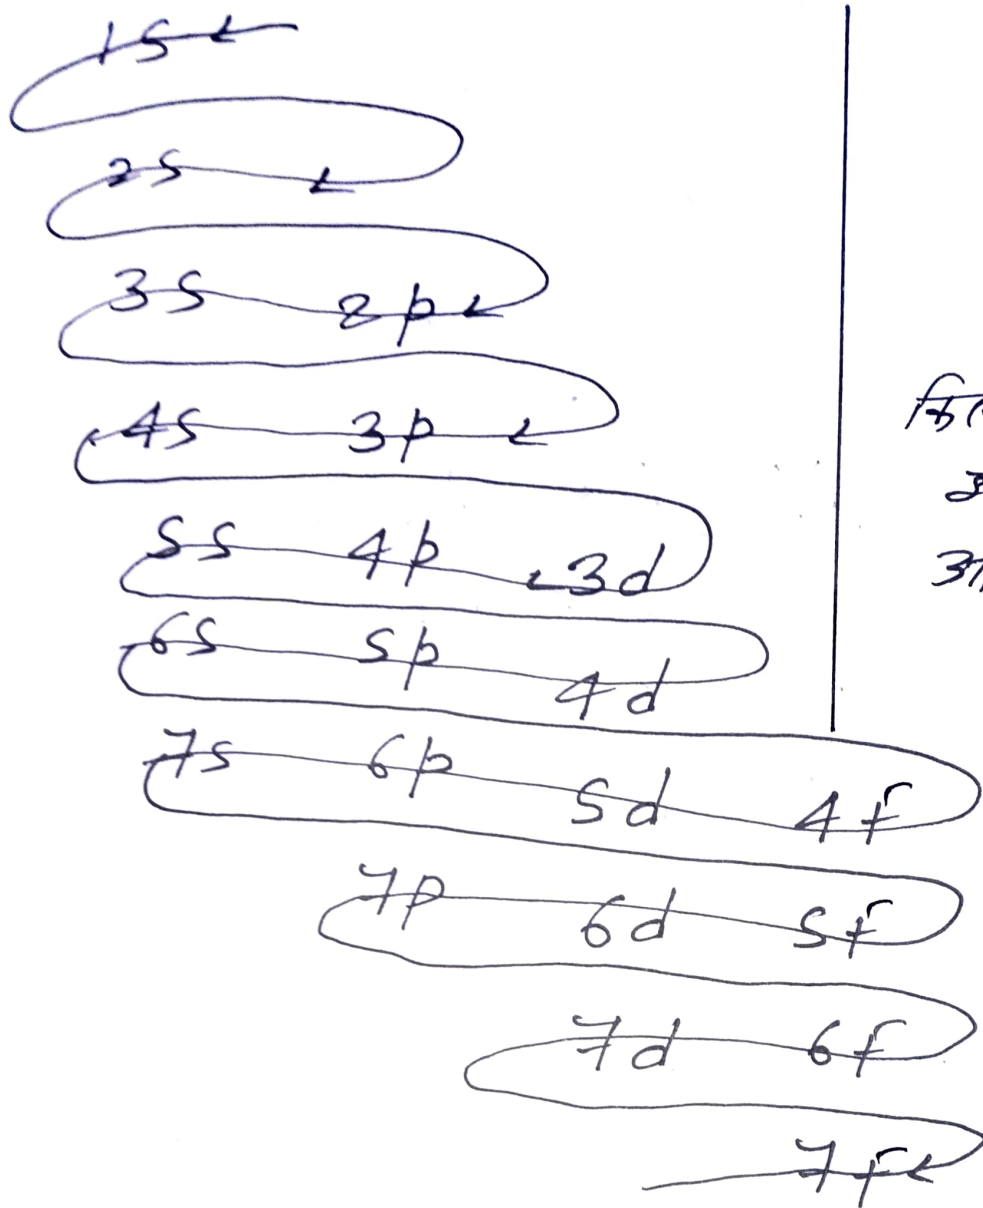 1s
2s
3s 2p
4s 3p
5s 4p 3d
6s 5p 4d
7s 6p 5d 4f
7p 6d 5f
7d 6f
7f